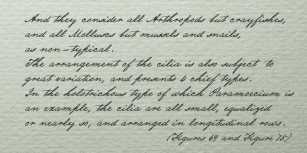 And they consider all Arthropods but crayfishes,
and all Molluscs but mussels and snails,
as non-typical.
The arrangement of the cilia is also subject to
great variation, and presents 4 chief types.
In the holotrichous type of which Paramoecium is
an example, the cilia are all small, equalized
or nearly so, and arranged in longitudinal rows.
(Figures 69 and Figure 75)